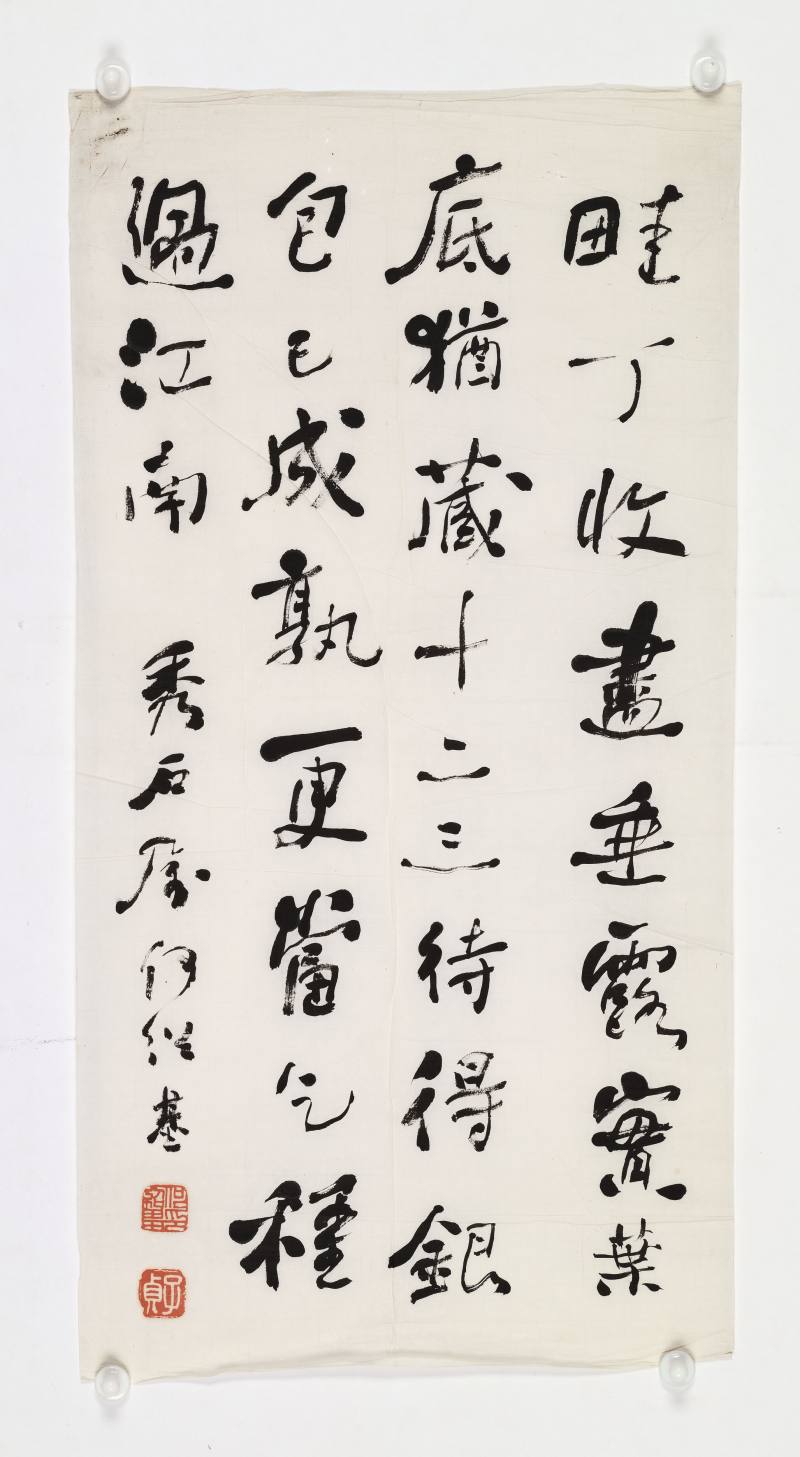 畦丁收盡垂露實葉
底猶藏十二三待得銀
包已成孰更當乞種
過江南
秀石 何紹基
子貞